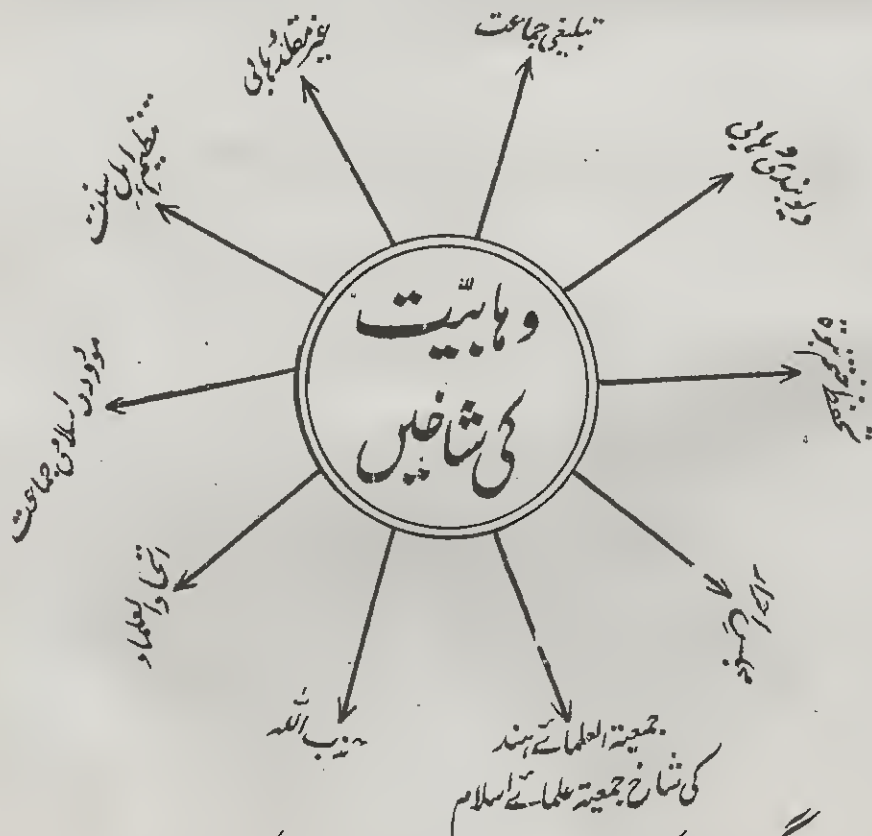 وہابیّت
کی شاخیں
تبلیغی جماعت
دیوبندی وہابی
تحفظ ختم نبوۃ
احرار
جمعیۃ العلمائے ہند
کی شاخ جمعیۃ علمائے اسلام
حزب اللہ
اتحاد العلماء
مودودی اسلامی جماعت
تنظیم اہل سنت
غیر مقلد وہابی